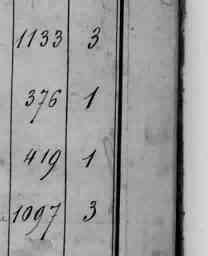 1133 3
376 1
419 1
1097 3